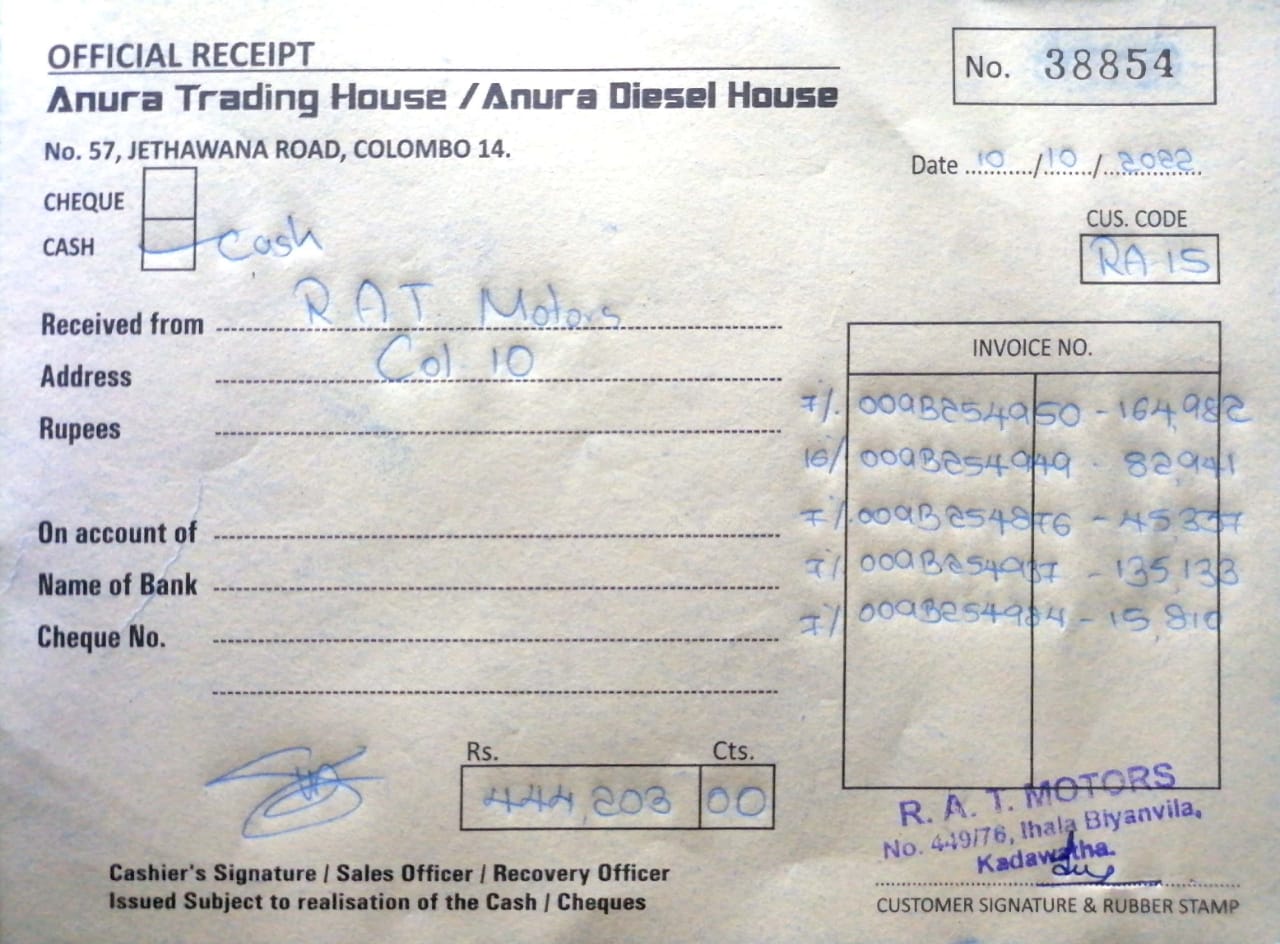 OFFICIAL RECEIPT
No. 38854
Anura Trading House / Anura Diesel House
No. 57, JETHAWANA ROAD, COLOMBO 14.
Date 10/10/2022
CHEQUE
CASH Cash
CUS. CODE
RA 15
Received from R A T Motors
Address Col. 10
Rupees
On account of
Name of Bank
Cheque No.
INVOICE NO.
7%. 009B254950 - 164,982
16% 009B254949 - 82,941
7%. 009B254876 - 45,337
7% 009B254937 - 135,133
7% 009B254984 - 15,810
Rs. Cts.
444,203 00
R. A. T. MOTORS
No. 449/76, Ihala Biyanvila,
Kadawatha.
Cashier's Signature / Sales Officer / Recovery Officer
Issued Subject to realisation of the Cash / Cheques
CUSTOMER SIGNATURE & RUBBER STAMP